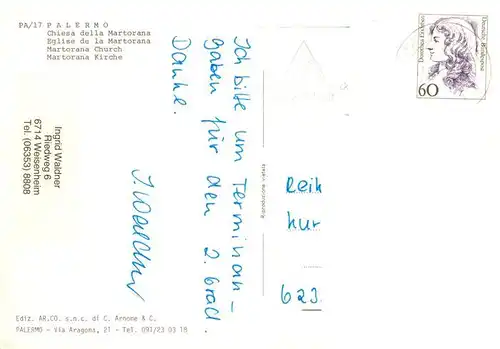 PA/17 PALERMO
Chiesa della Martorana
Eglise de la Martorana
Martorana Church
Martorana Kirche
Ingrid Waldner
Riedweg 6
6714 Weisenheim
Tel. (06353) 8808
Ich bitte um Terminan-
gaben für den 2. Grad.
Danke.
I. Waldner
Deutsche Bundespost
60
Reih
hur
623
Ediz. AR.CO. s.n.c. di C. Arnone & C.
PALERMO - Via Aragona, 21 - Tel. 091/23 03 18